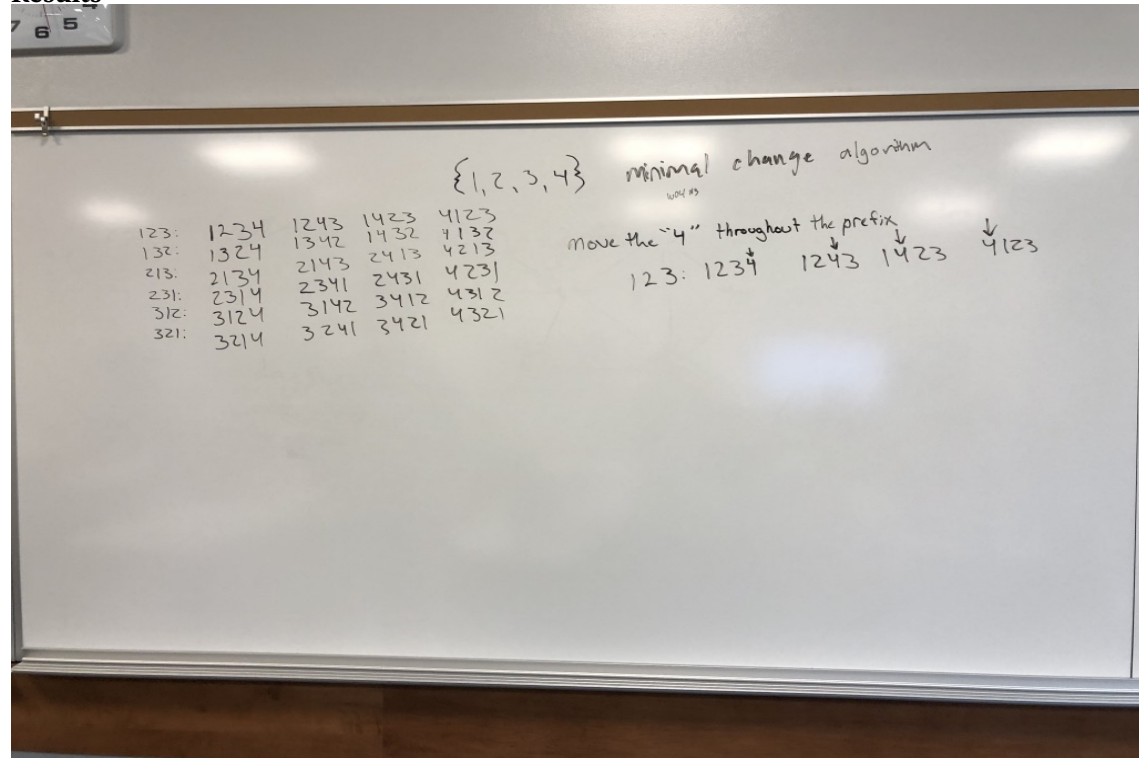 Results
7 6 5 4
{1,2,3,4} minimal change algorithm
123: 1234 1243 1423 4123
132: 1324 1342 1432 4132
213: 2134 2143 2413 4213
231: 2314 2341 2431 4231
312: 3124 3142 3412 4312
321: 3214 3241 3421 4321
move the "4" throughout the prefix
123: 1234 1243 1423 4123